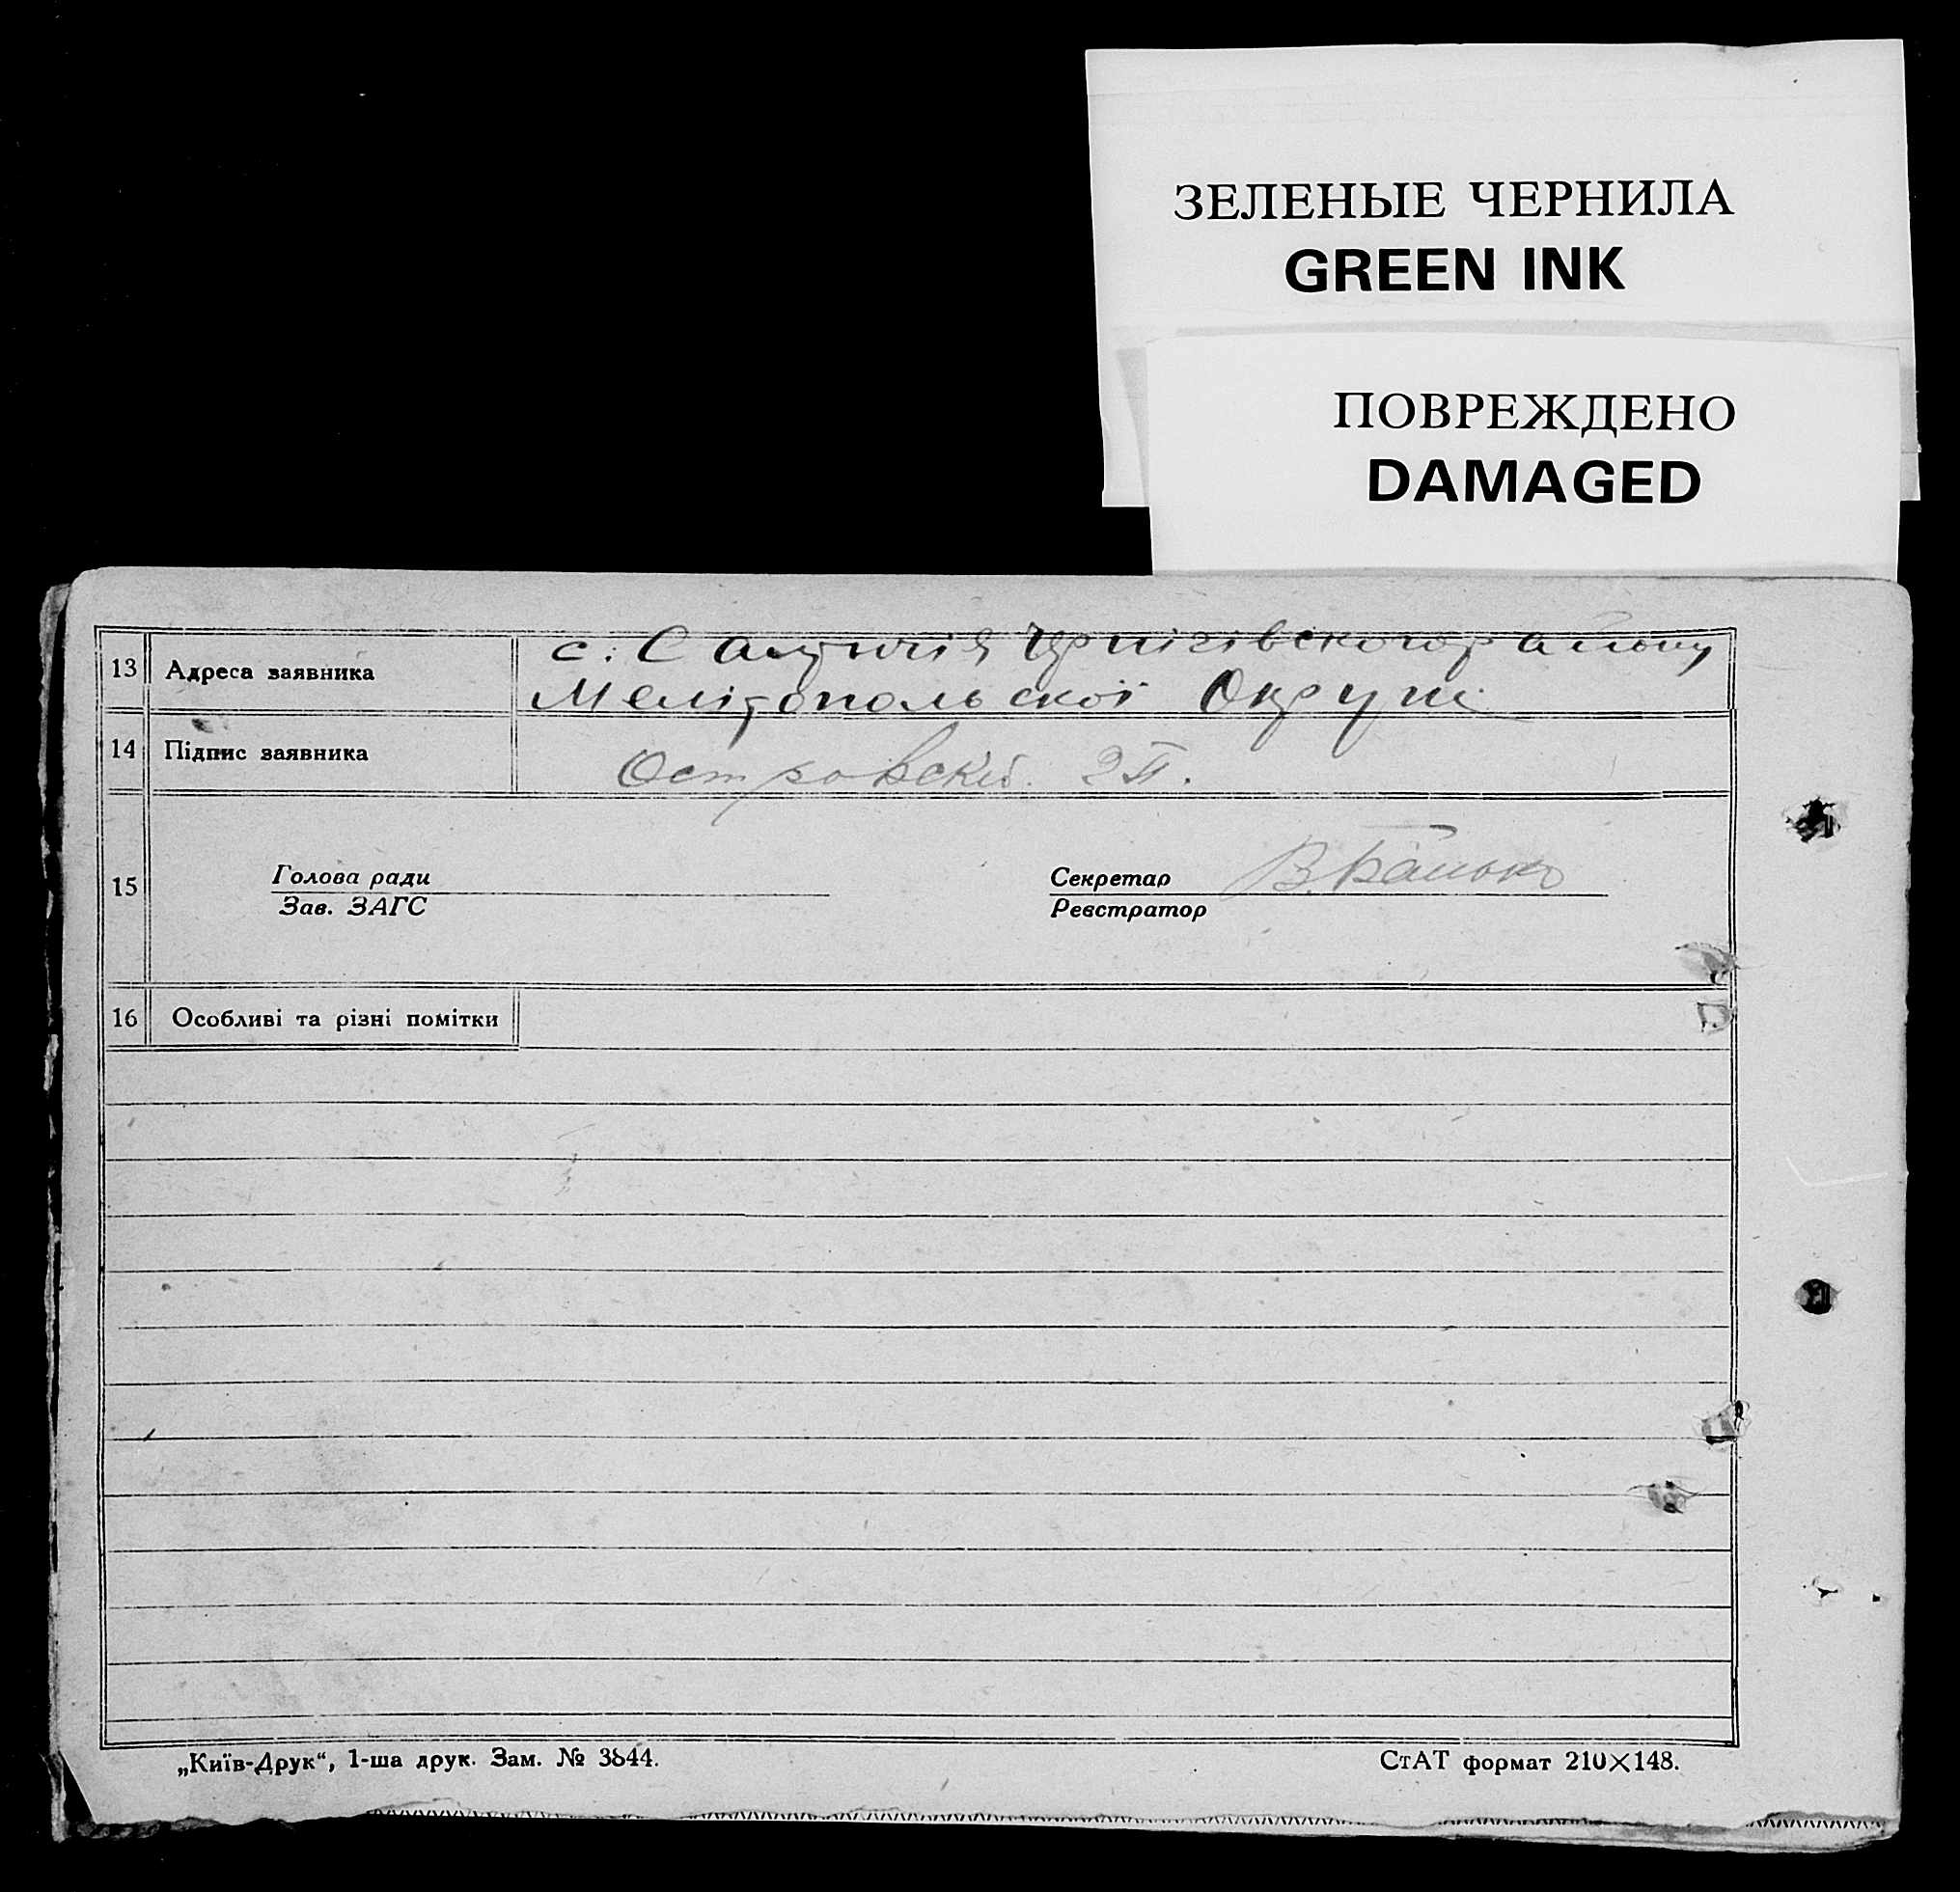 ЗЕЛЕНЫЕ ЧЕРНИЛА
GREEN INK
ПОВРЕЖДЕНО
DAMAGED
13 Адреса заявника с. Чернігівского району
Мелітопольскої Округи
14 Підпис заявника Островский
15 Голова ради
Зав. ЗАГС
Секретар
Реєстратор
16 Особливі та різні помітки
„Київ-Друк“, 1-ша друк. Зам. № 3844.
СтАТ формат 210×148.